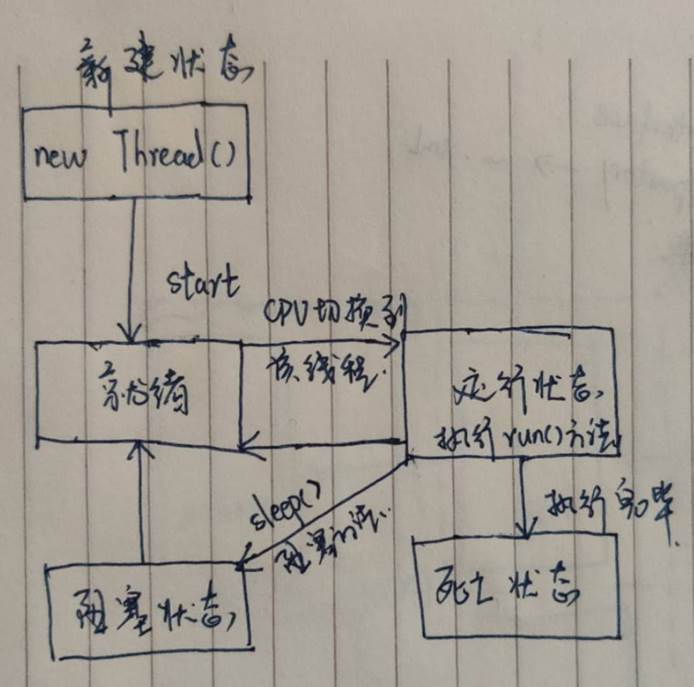 新建状态
new Thread()
start
CPU切换到
该线程.
就绪
运行状态,
执行run()方法
sleep()
阻塞方法..
执行完毕.
阻塞状态,
死亡状态